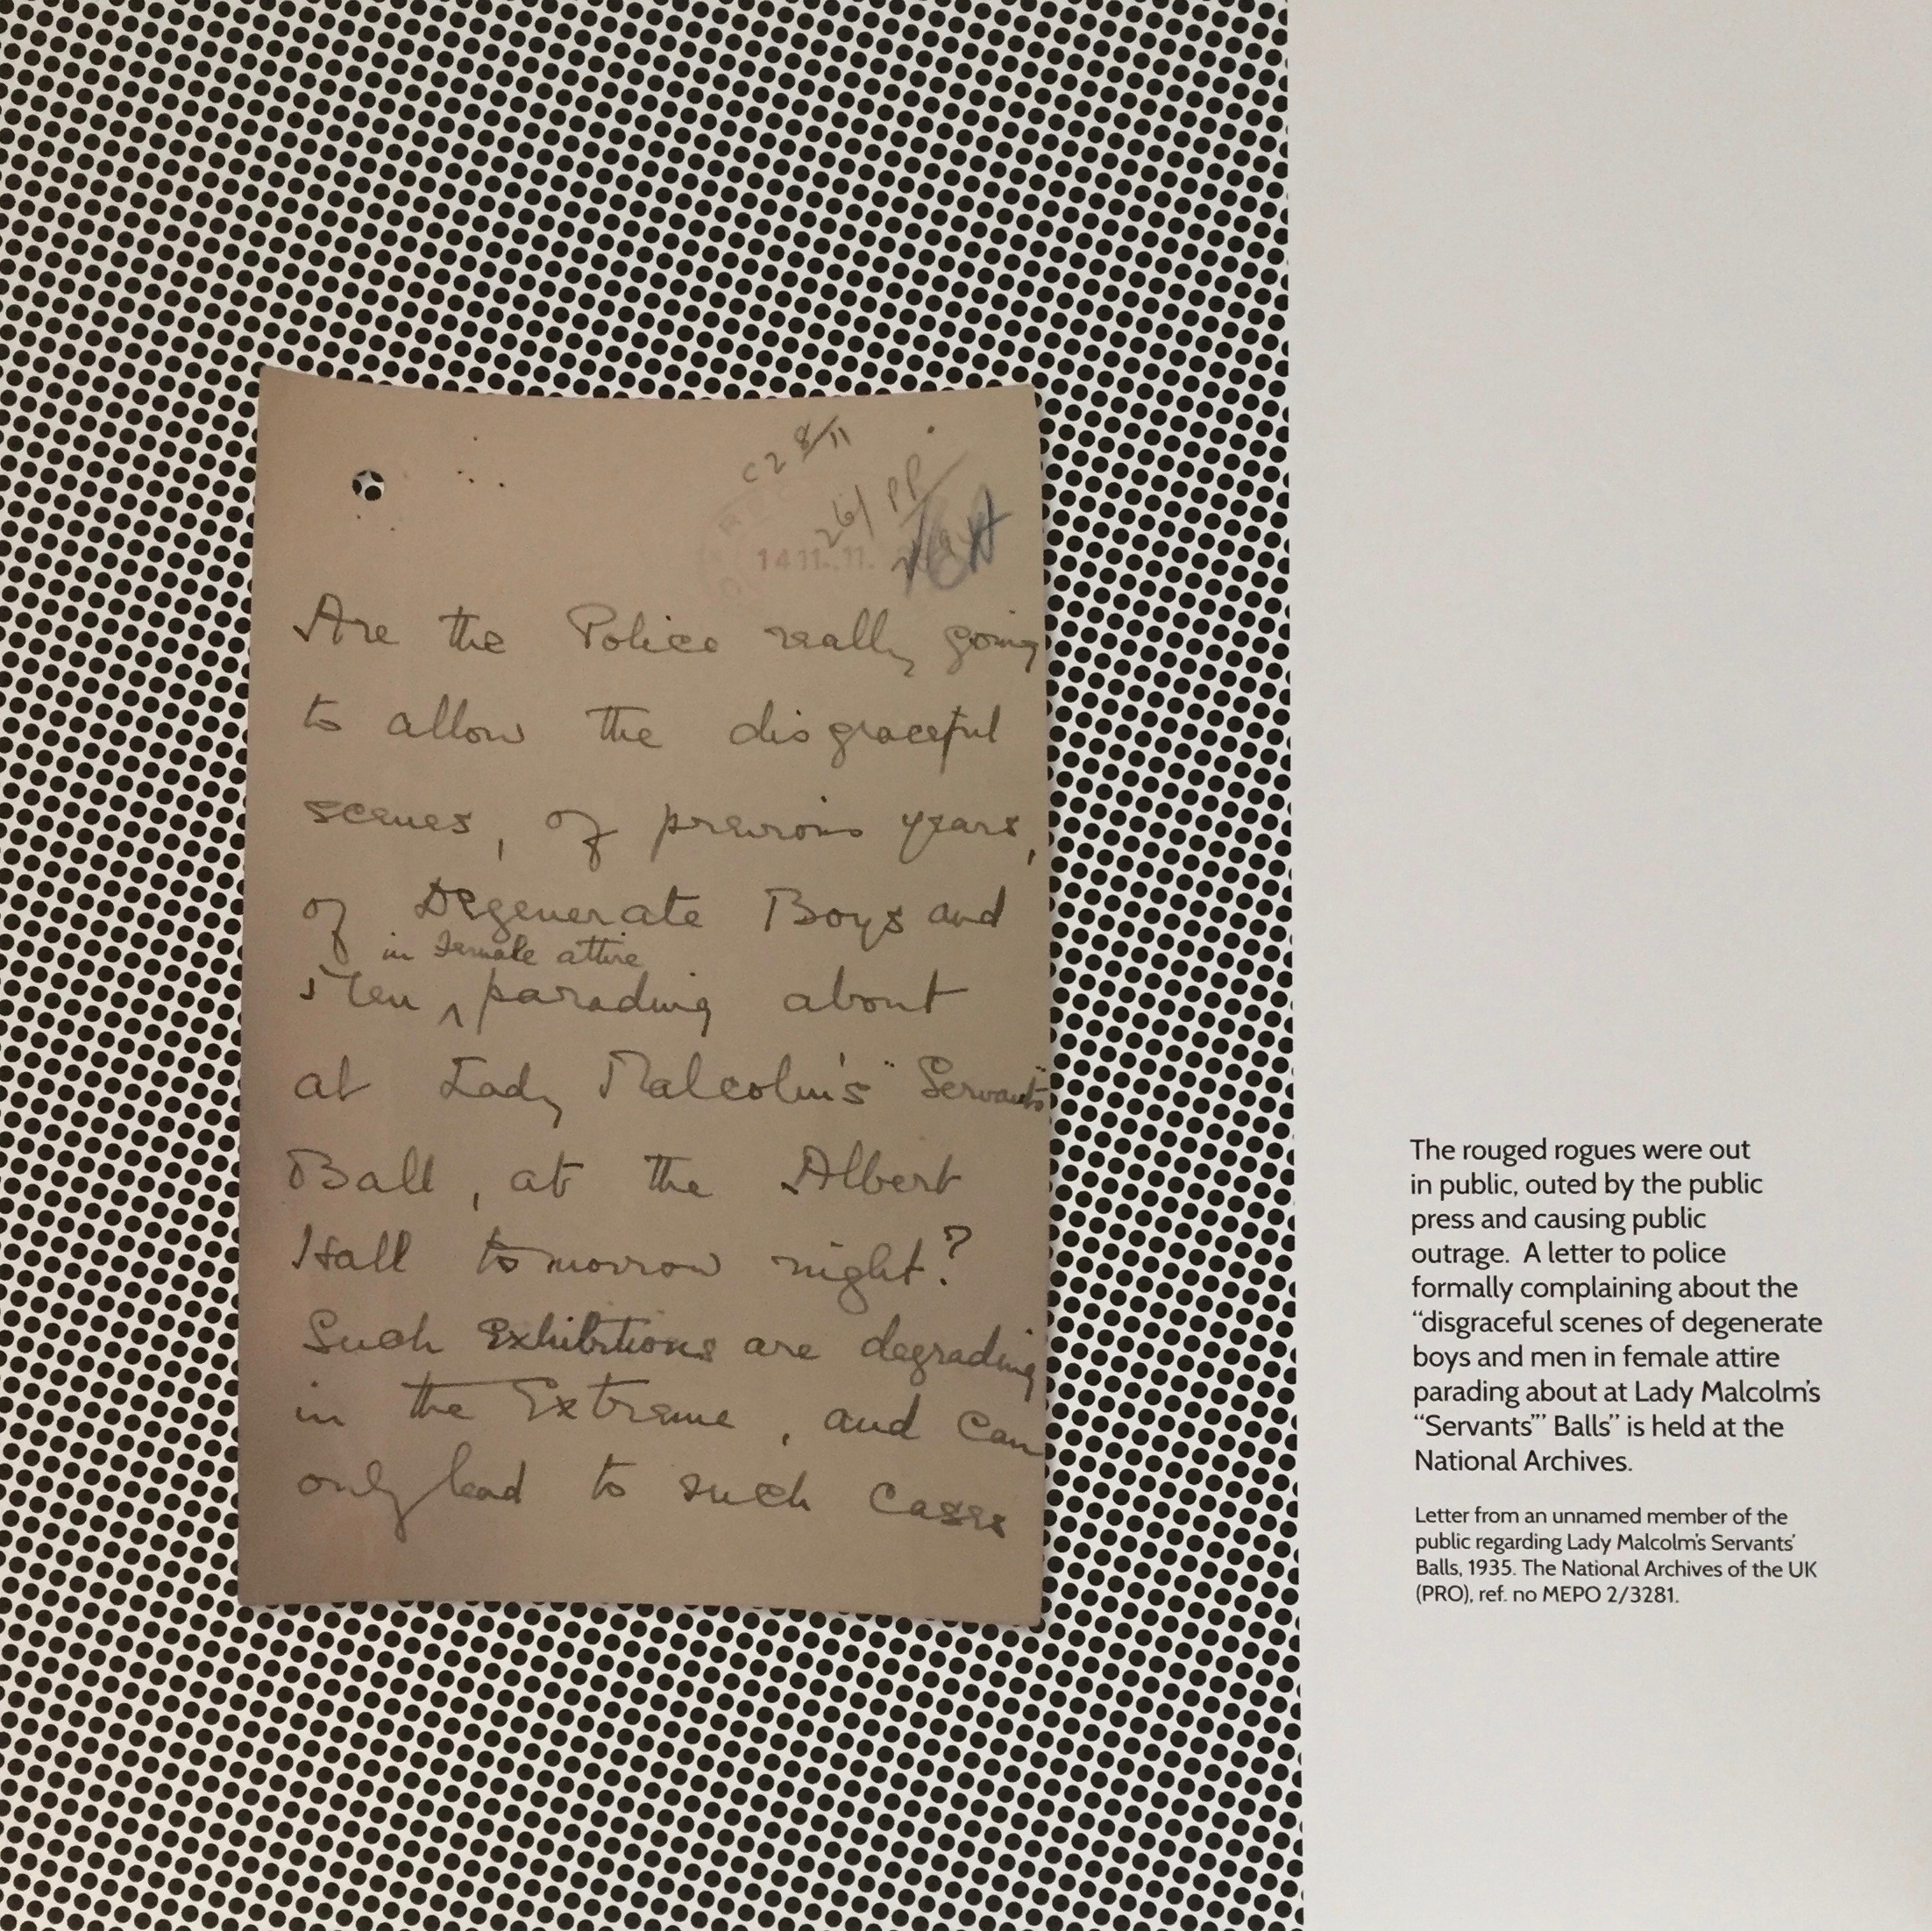 C2 8/11
26/PP
1411..11.
Are the Police really going
to allow the disgraceful
scenes, of previous years,
of Degenerate Boys and
in female attire
Men ^ parading about
at Lady Malcolm's "Servants"
Ball, at the Albert
Hall tomorrow night?
Such Exhibitions are degrading
in the Extreme, and can
only lead to such cases
The rouged rogues were out
in public, outed by the public
press and causing public
outrage.  A letter to police
formally complaining about the
“disgraceful scenes of degenerate
boys and men in female attire
parading about at Lady Malcolm’s
“Servants”’ Balls” is held at the
National Archives.
Letter from an unnamed member of the
public regarding Lady Malcolm’s Servants’
Balls, 1935. The National Archives of the UK
(PRO), ref. no MEPO 2/3281.